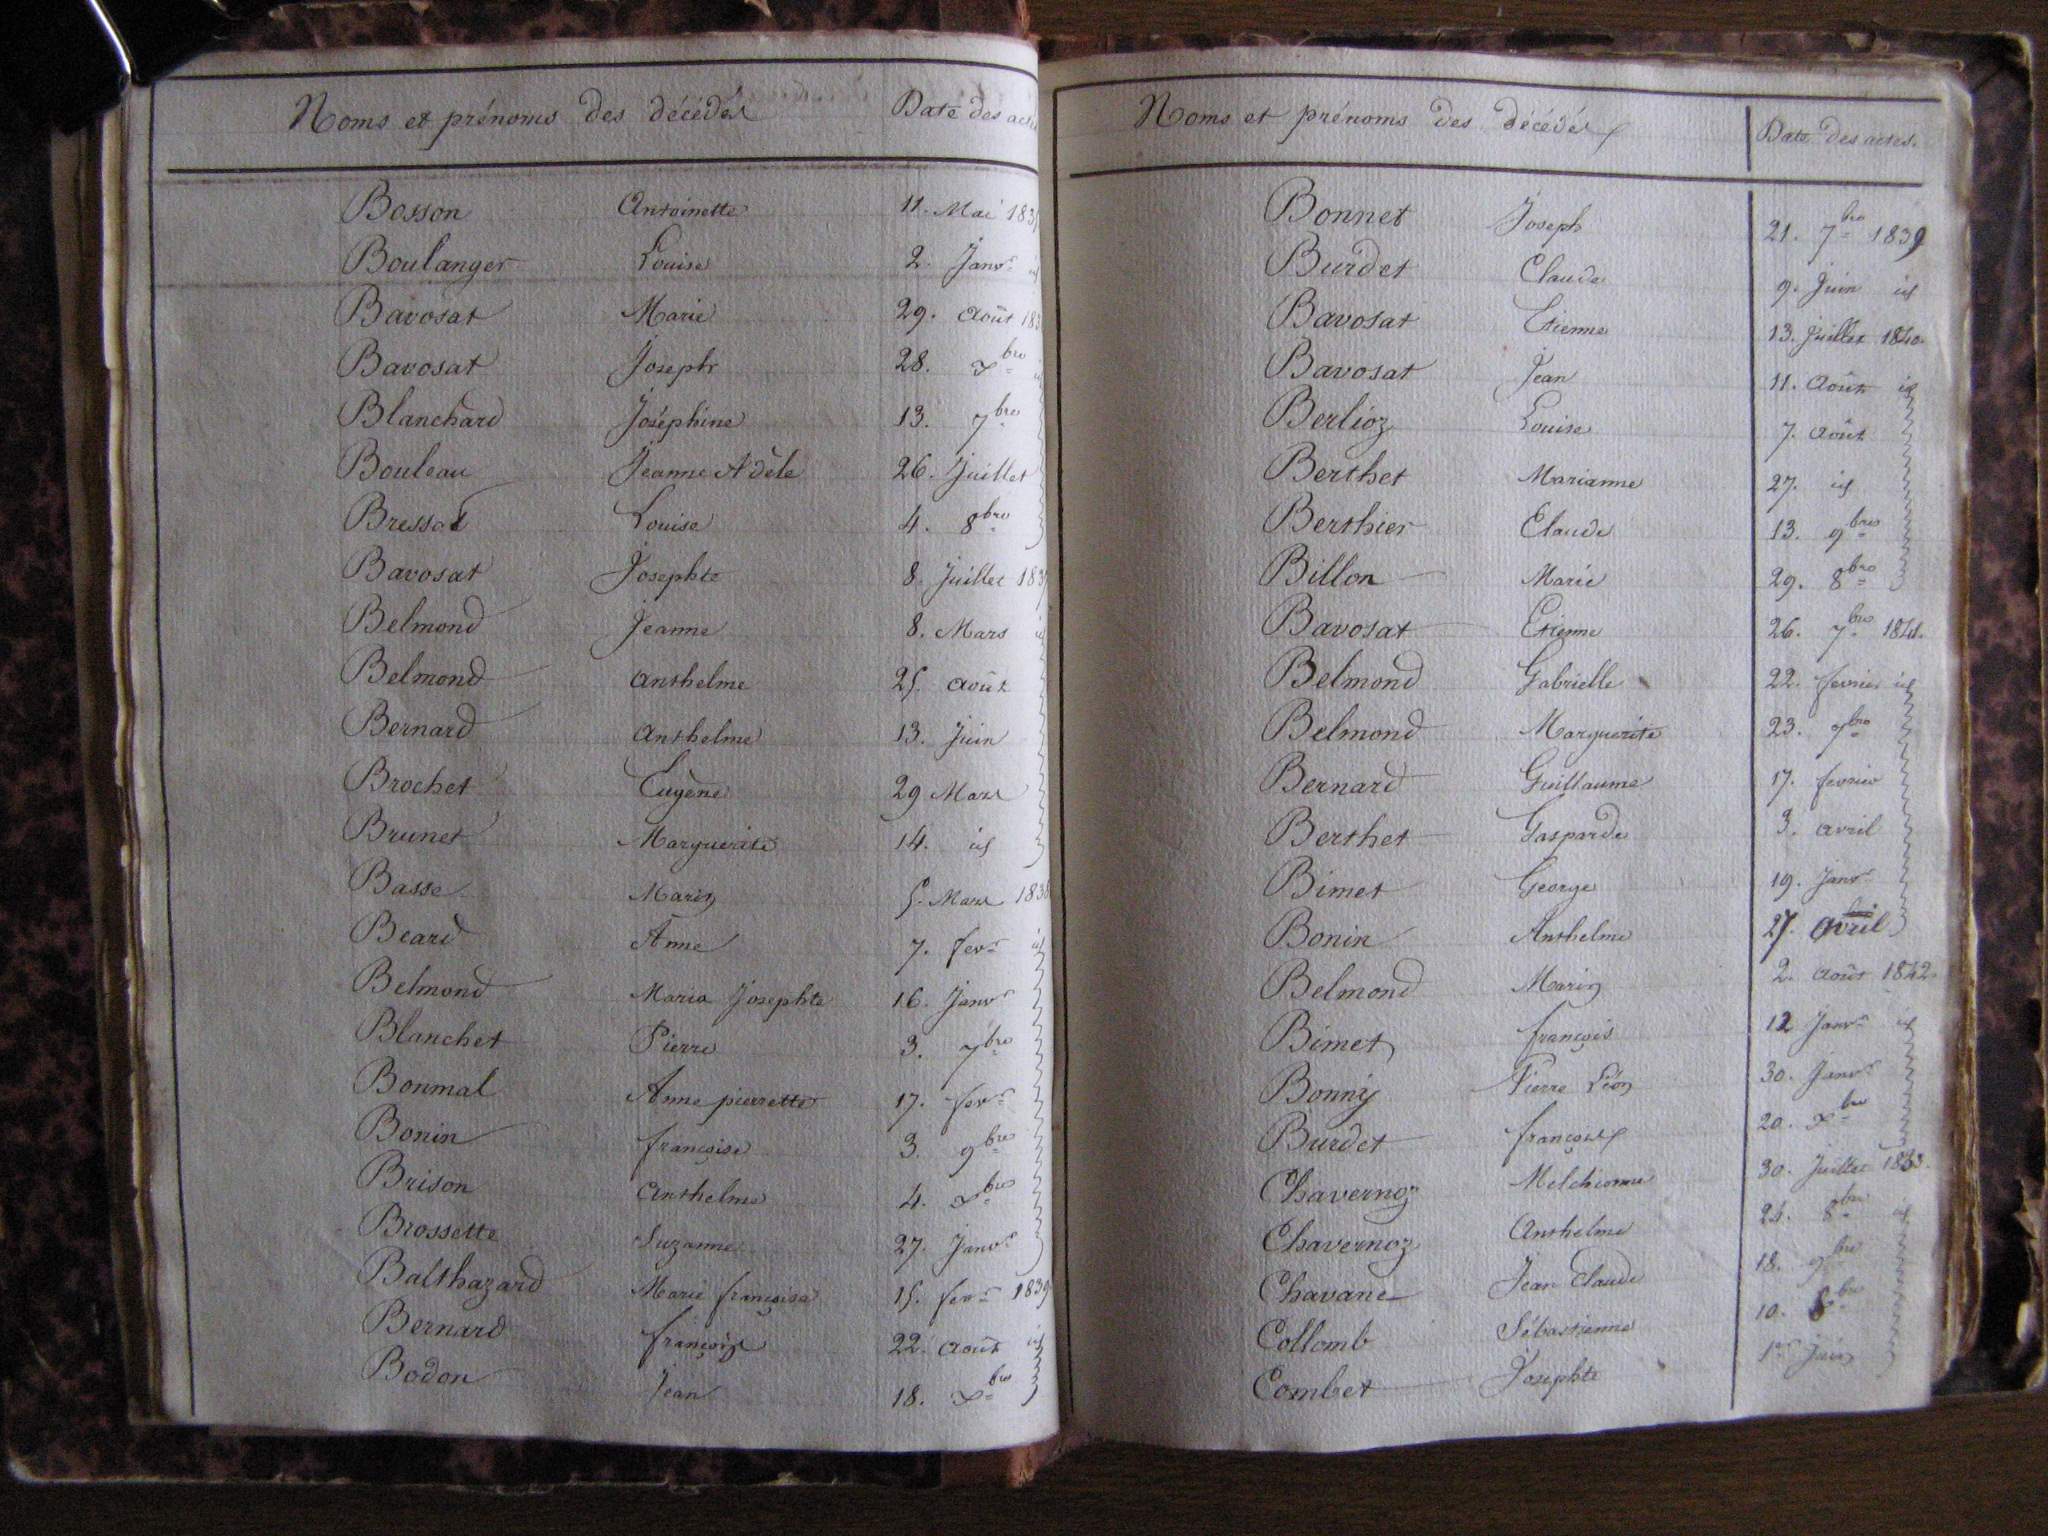 Noms et prénoms des décédés Date des actes
Bosson Antoinette 11. Mai
Boulanger Louise 2. Janvr id
Bavosat Marie 29. Août
Bavosat Joseph 28. Xbre id
Blanchard Joséphine 13. 7bre
Bouleau Jeanne Adèle 26. Juillet
Bressot Louise 4. 8bre
Bavosat Josephte 8. Juillet
Belmond Jeanne 8. Mars id
Belmond Anthelme 25. Août
Bernard Anthelme 13. Juin
Brochet Eugène 29 Mars
Brunet Marguerite 14. id
Basse Marin 5. Mars 1838
Beard Anne 7. fevr id
Belmond Maria Josephte 16. Janvr
Blanchet Pierre 3. 7bre
Bonmal Anne pierrette 17. fevr
Bonin françoise 3. 9bre
Brison Anthelme 4. Xbre
Brossette Suzanne 27. Janvr
Balthazard Marie françoise 15. fevr 1839
Bernard françoise 22. Août id
Bodon Jean 18. Xbre
Noms et prénoms des décédés Date des actes.
Bonnet Joseph 21. 7bre 1839
Burdet Claude 9. Juin id
Bavosat Etienne 13. Juillet 1840.
Bavosat Jean 11. Août id
Berlioz Louise 7. Août
Berthet Marianne 27. id
Berthier Claude 13. 9bre
Billon Marie 29. 8bre
Bavosat Etienne 26. 7bre 1841.
Belmond Gabrielle 22. fevrier id
Belmond Marguerite 23. 7bre
Bernard Guillaume 17. fevrier
Berthet Gasparde 3. Avril
Bimet George 19. Janvr
Bonin Anthelme 27. Avril
Belmond Marin 2. Août 1842.
Bimet françois 12 Janvr id
Bonny Pierre Léon 30. Janvr
Burdet françois 20. Xbre
Chavernoz Melchionne 30. Juillet 1833.
Chavernoz Anthelme 24. 8bre id
Chavane Jean Claude 18. 9bre
Collomb Sébastienne 10. 8bre
Combet Josephte 1er Juin